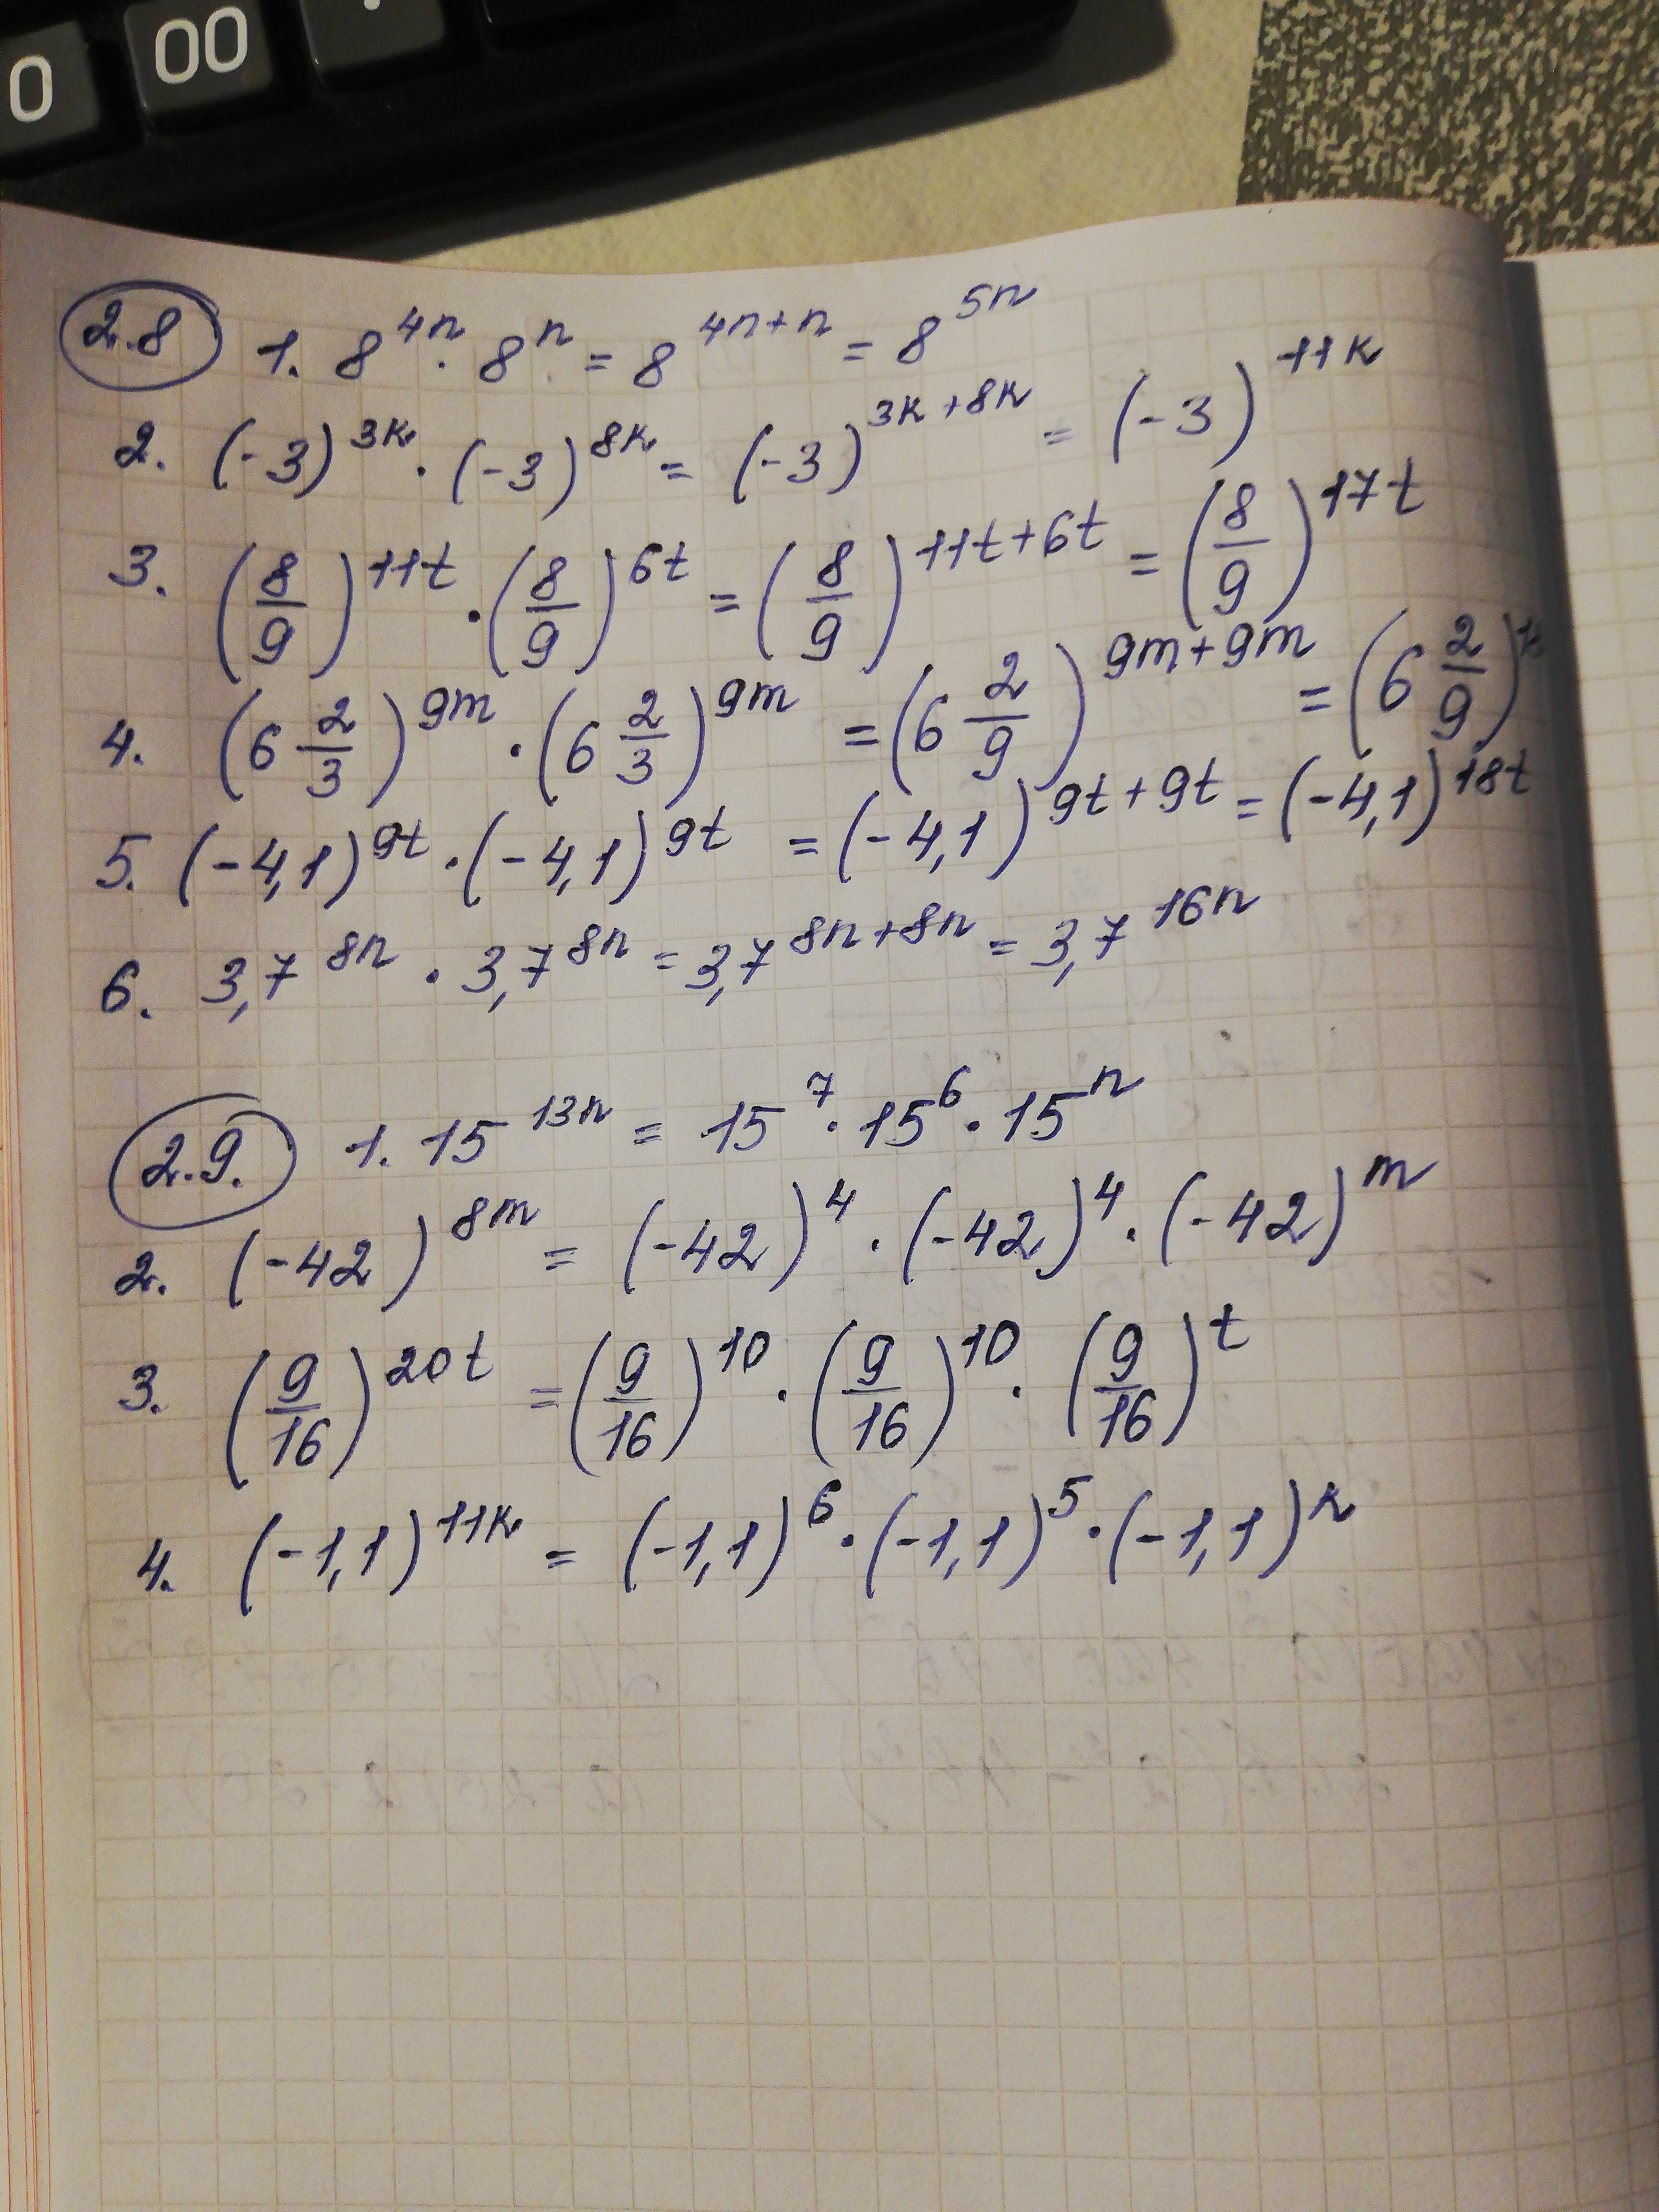 0 00 .
2.8 1. 8^{4n} · 8^{n} = 8^{4n+n} = 8^{5n}
2. (-3)^{3k} · (-3)^{8k} = (-3)^{3k+8k} = (-3)^{11k}
3. (8/9)^{11t} · (8/9)^{6t} = (8/9)^{11t+6t} = (8/9)^{17t}
4. (6 2/3)^{9m} · (6 2/3)^{9m} = (6 2/9)^{9m+9m} = (6 2/9)
5. (-4,1)^{9t} · (-4,1)^{9t} = (-4,1)^{9t+9t} = (-4,1)^{18t}
6. 3,7^{8n} · 3,7^{8n} = 3,7^{8n+8n} = 3,7^{16n}
2.9. 1. 15^{13n} = 15^{7} · 15^{6} · 15^{n}
2. (-42)^{8m} = (-42)^{4} · (-42)^{4} · (-42)^{m}
3. (9/16)^{20t} = (9/16)^{10} · (9/16)^{10} · (9/16)^{t}
4. (-1,1)^{11k} = (-1,1)^{6} · (-1,1)^{5} · (-1,1)^{k}